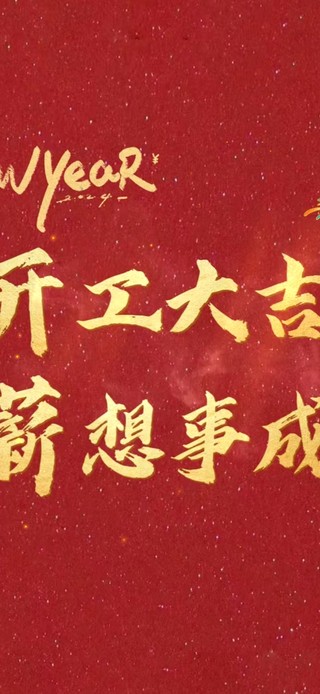 W YeaR
2024
开工大吉
薪想事成